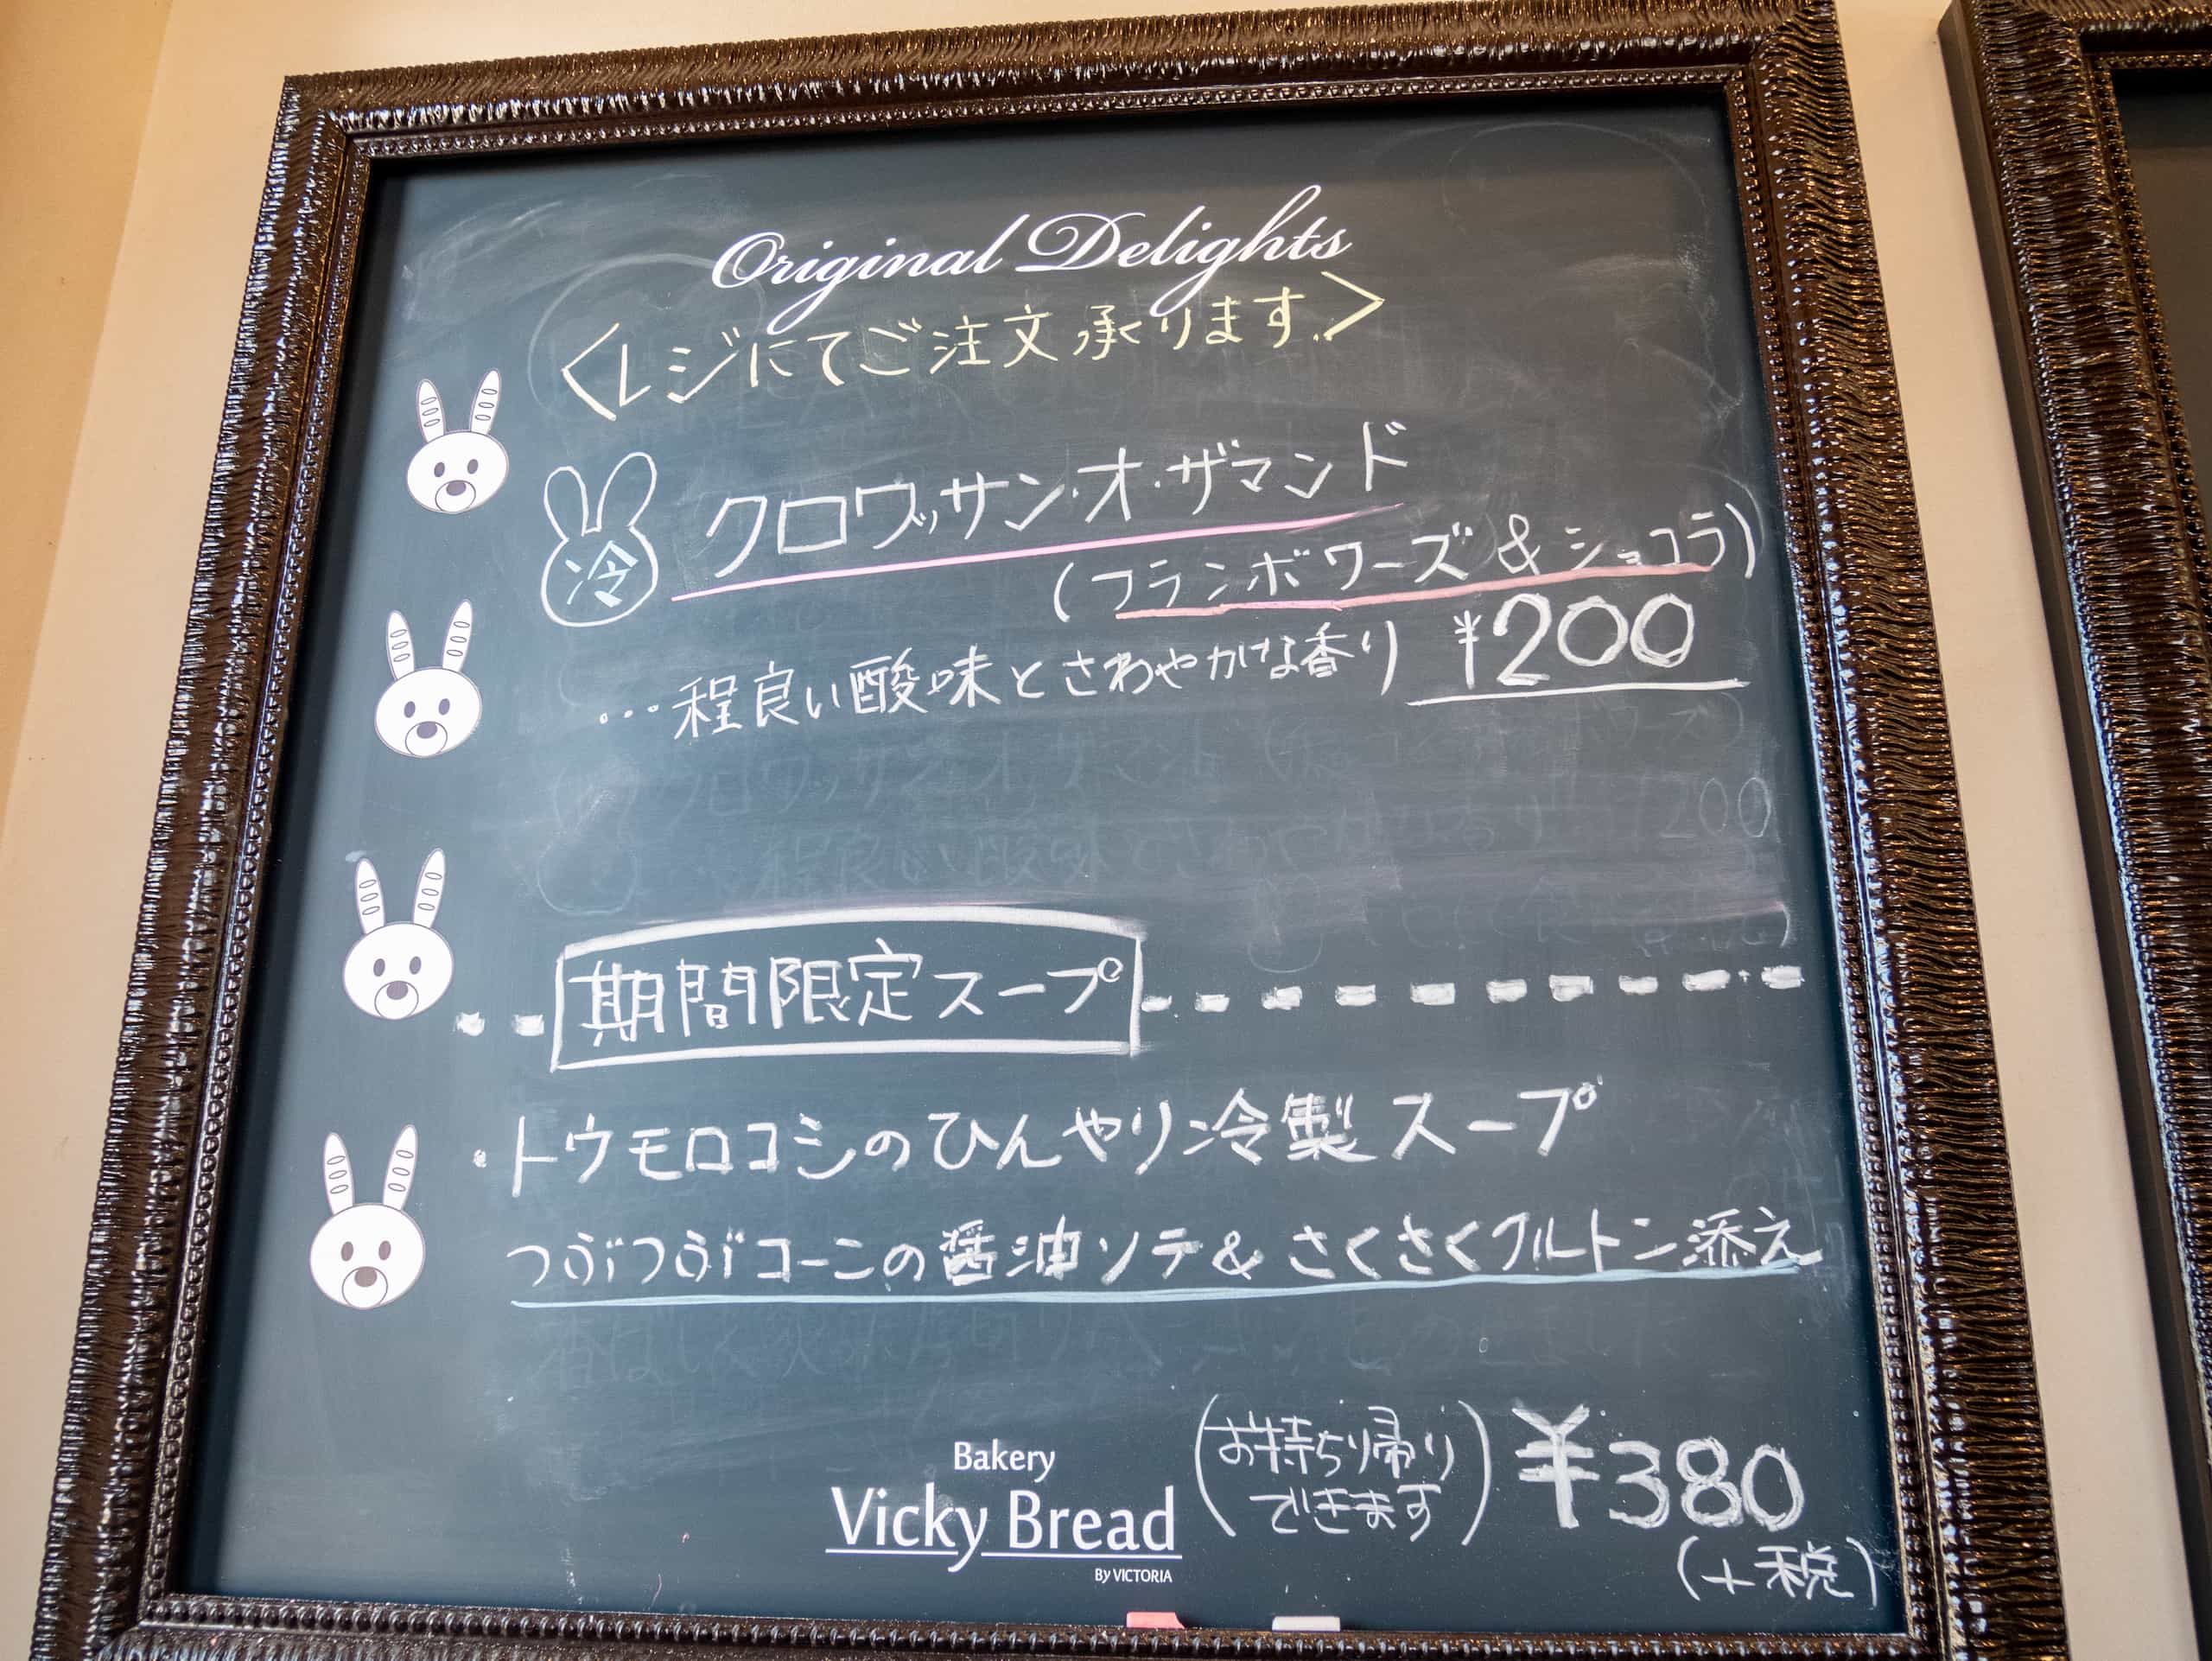 Original Delights
<レジにてご注文承ります.>
冷 クロワッサン・オ・ザマンド
(フランボワーズ & ショコラ)
…程良い酸味とさわやかな香り ¥200
期間限定スープ
・トウモロコシのひんやり冷製スープ
つぶつぶコーンの醤油ソテ& さくさくクルトン添え
(お持ち帰りできます) ¥380
(+税)
Bakery
Vicky Bread
By VICTORIA